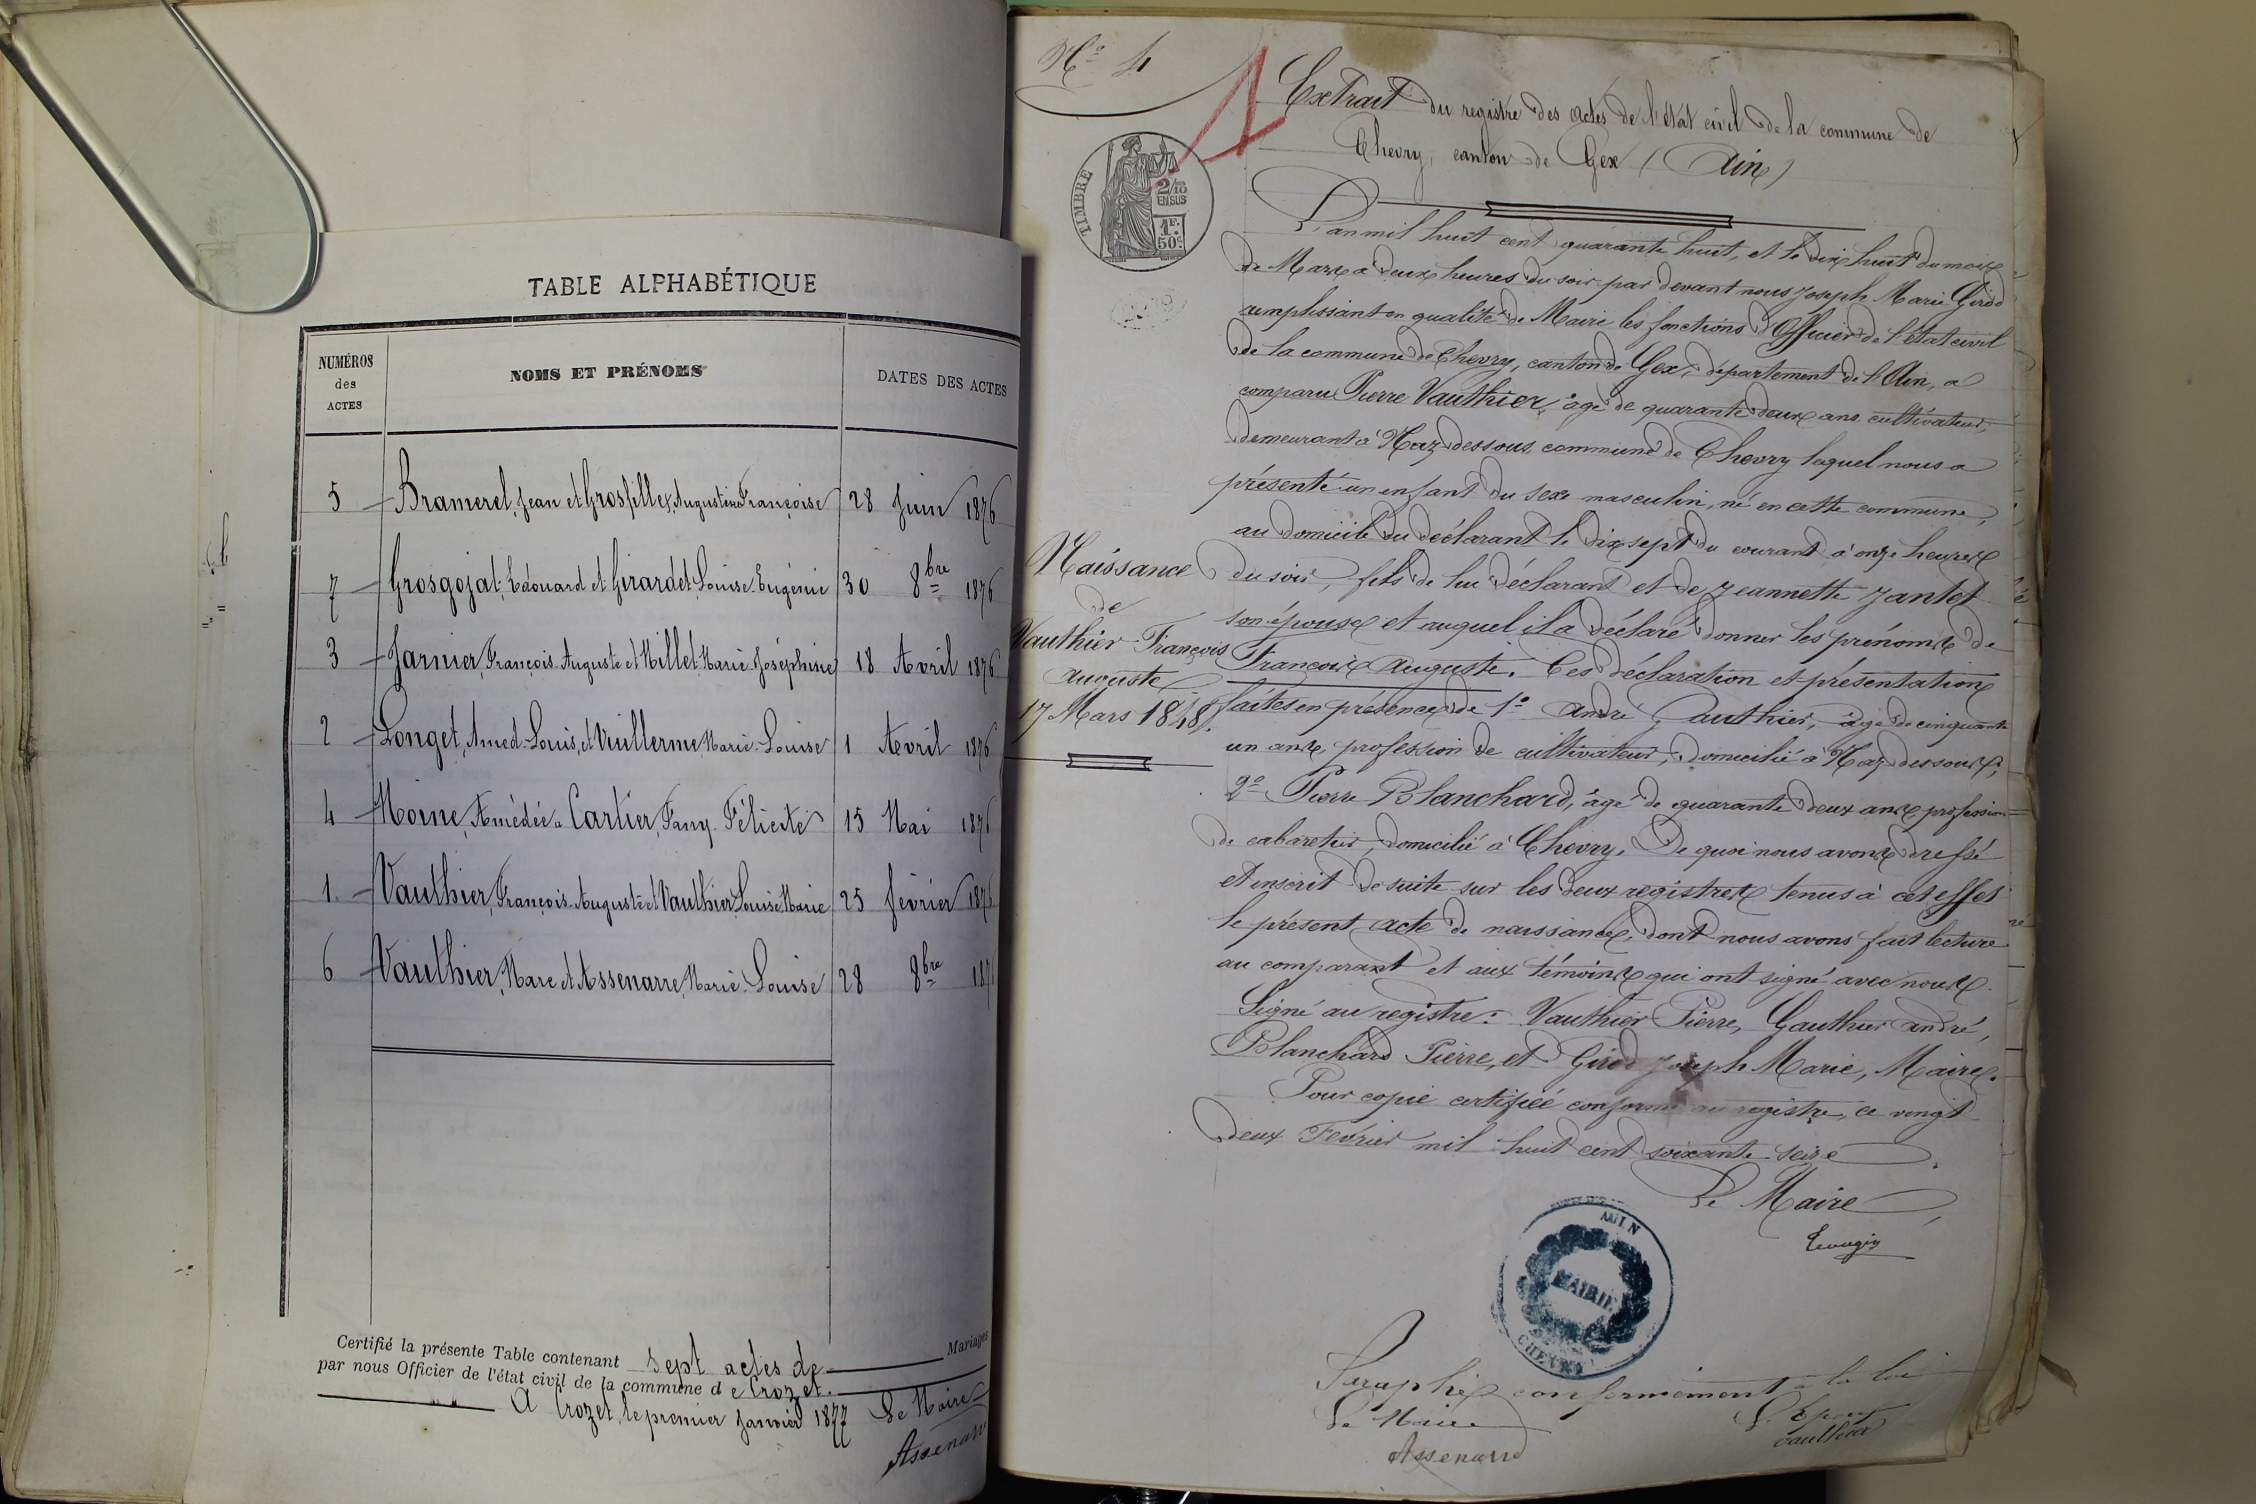 TABLE ALPHABÉTIQUE
NUMÉROS des ACTES NOMS ET PRÉNOMS DATES DES ACTES
5 Bramerel, Jean et Grosfillex, Augustine Françoise 28 Juin 1876
7 Grosgojat, Edouard et Girardet, Louise-Eugénie 30 8bre 1876
3 Jarnier, François-Auguste et Millet Marie-Joséphine 18 Avril 1876
2 Longet, Amed-Louis, et Vuillerme Marie-Louise 1 Avril 1876
4 Moine, Amédée & Cartier, Fany-Félicité 15 Mai 1876
1. Vauthier, François-Auguste et Vauthier Louise Marie 25 février 1876
6 Vauthier, Marc et Assenarre, Marie-Louise 28 8bre 187
Certifié la présente Table contenant sept actes de Mariages
par nous Officier de l'état civil de la commune de Crozet.
A Crozet, le premier Janvier 1877 Le Maire
Assenarre
No 4
1
TIMBRE
2/10 EN SUS
1F. 50c.
Extrait du registre des actes de l'état civil de la commune de
Chevry, canton de Gex (Ain)
L'an mil huit cent quarante huit, et le dix huit du mois
de Mars à deux heures du soir par devant nous Joseph Marie Girod
remplissant en qualité de Maire les fonctions d'Officier de l'état civil
de la commune de Chevry, canton de Gex, département de l'Ain, a
comparu Pierre Vauthier, âgé de quarante deux ans cultivateur,
demeurant à Naz-dessous commune de Chevry lequel nous a
présenté un enfant du sexe masculin, né en cette commune,
au domicile du déclarant le dix sept du courant à onze heures
du soir, fils de lui déclarant et de Jeannette Jantet
son épouse et auquel il a déclaré donner les prénoms de
François Auguste. Ces déclaration et présentation
faites en présence de 1o André Gauthier, âgé de cinquante
un ans, profession de cultivateur, domicilié à Naz dessous,
2o Pierre Blanchard, âgé de quarante deux ans profession
de cabaretier, domicilié à Chevry. De quoi nous avons dressé
et inscrit de suite sur les deux registres tenus à cet effet
le présent acte de naissance, dont nous avons fait lecture
au comparant et aux témoins qui ont signé avec nous.
Signé au registre: Vauthier Pierre, Gauthier André,
Blanchard Pierre, et Girod Joseph Marie, Maire.
Pour copie certifiée conforme au registre, ce vingt
deux Février mil huit cent soixante-seize
Naissance
de
Vauthier François
Auguste
17 Mars 1848.
Le Maire
AIN
MAIRIE
CHEVRY
Paraphé conformément à la loi
Le Maire L'Epoux
Assenarre Vauthier